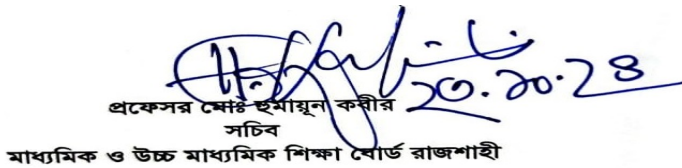 ২০.১০.২৪
প্রফেসর মোঃ হুমায়ূন কবীর
সচিব
মাধ্যমিক ও উচ্চ মাধ্যমিক শিক্ষা বোর্ড রাজশাহী